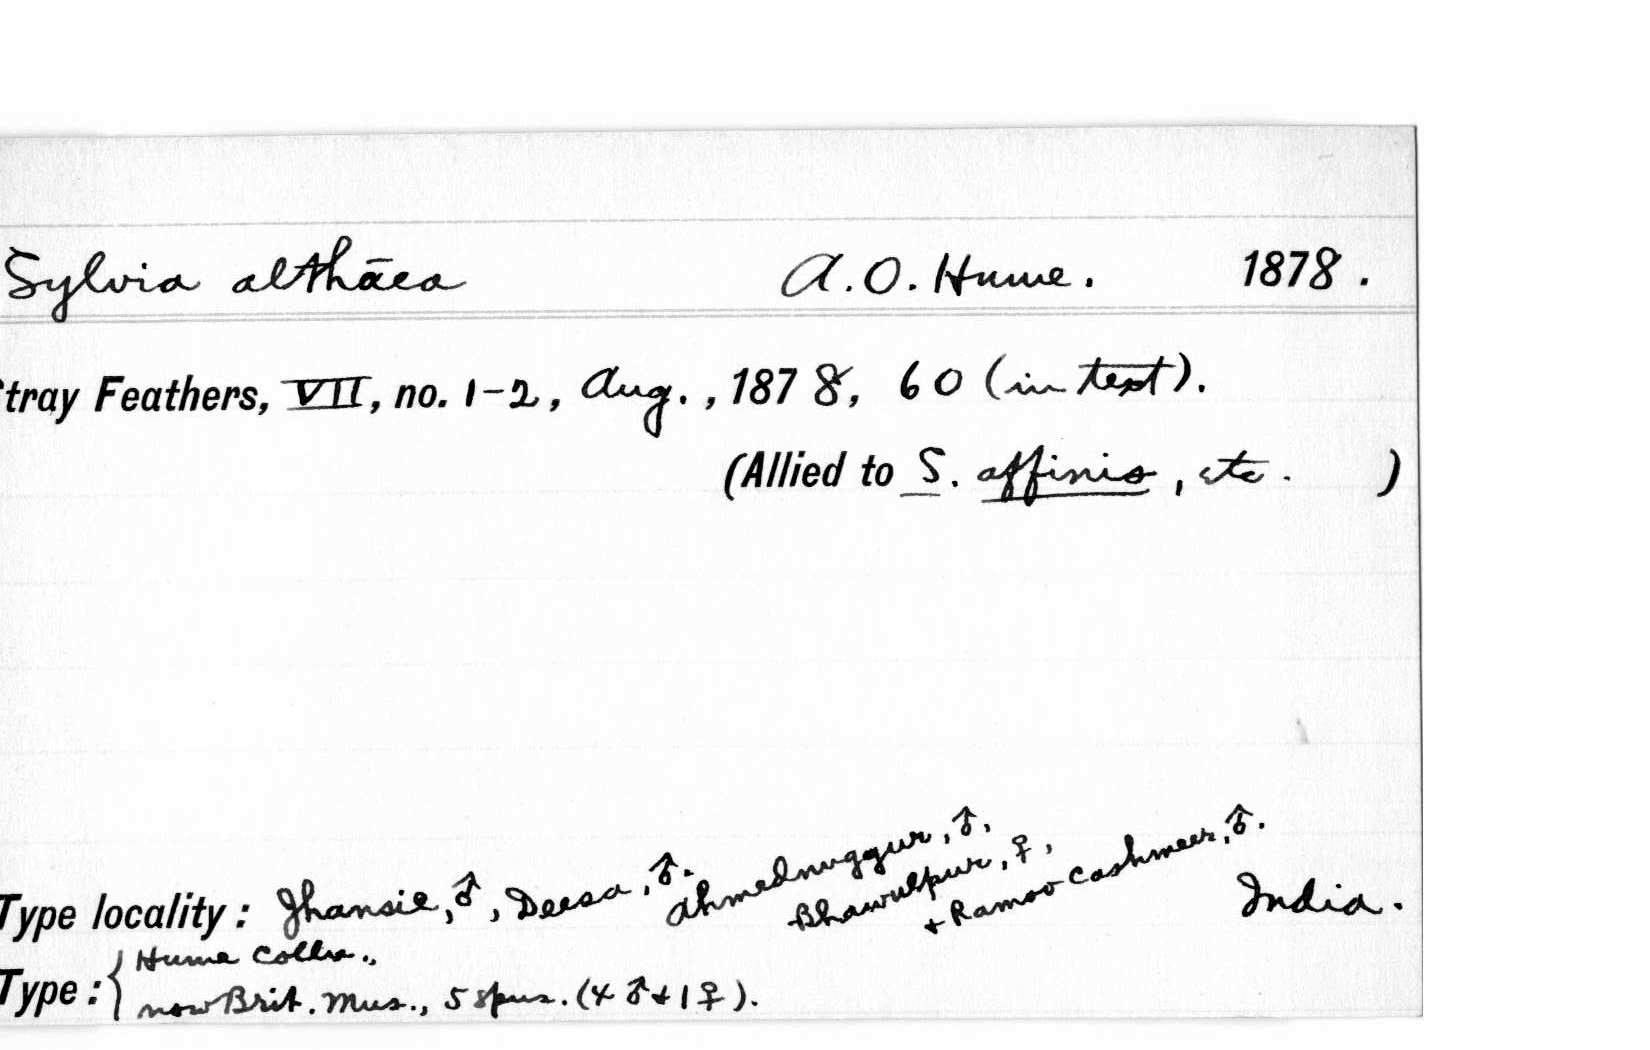 Sylvia althāea A. O. Hume. 1878.
tray Feathers, VII, no. 1-2, Aug., 1878, 60 (in text).
(Allied to S. affinis, etc. )
Type locality: Jhansie, ♂, Deesa, ♂. Ahmednuggur, ♂, Bhawulpur, ♀, + Ramoo Cashmeer, ♂. India.
Type: { Hume Colln.,
now Brit. Mus., 5 spns. (4 ♂ + 1 ♀).